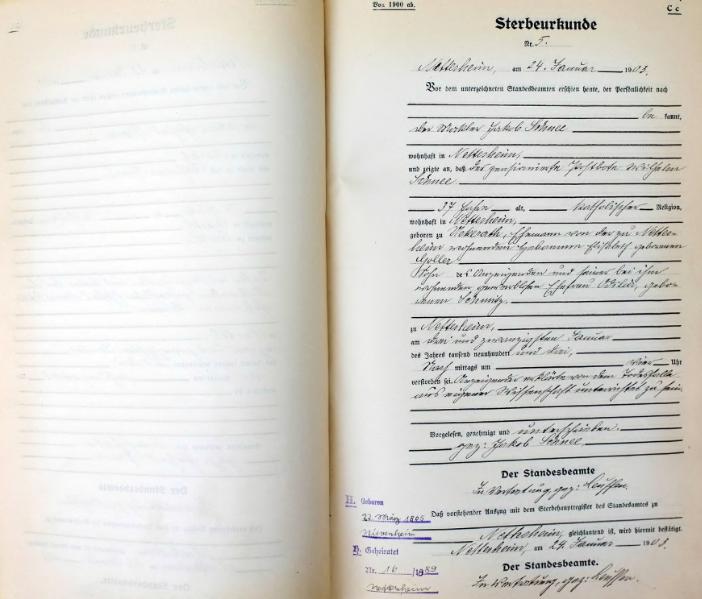 Vor 1900 ab.
C c
Sterbeurkunde
Nr. 5.
Nettersheim, am 24. Januar 1903.
Vor dem unterzeichneten Standesbeamten erschien heute, der Persönlichkeit nach
be kannt,
der Jakob Schnee
wohnhaft in Nettersheim,
und zeigte an, daß der pensionirte Postbote Wilhelm
Schnee
37 Jahre alt, katholischer Religion,
wohnhaft in Nettersheim,
geboren zu Ehemann von der zu Netters-
heim wohnenden Hebamme Elisabeth geborenen
Sohn des Anzeigenden und seiner bei ihm
wohnenden Ehefrau gebo-
renen Schmitz
zu Nettersheim,
am drei und zwanzigsten Januar
des Jahres tausend neunhundert und drei,
Nach mittags um vier Uhr
verstorben sei. Anzeigender erklärte von dem Todesfalle
aus eigener Wissenschaft unterrichtet zu sein.
Vorgelesen, genehmigt und unterschrieben.
gez: Jakob Schnee
Der Standesbeamte
In Vertretung, gez:
Daß vorstehender Auszug mit dem Sterbehauptregister des Standesamtes zu
Nettersheim, gleichlautend ist, wird hiermit bestätigt.
Nettersheim, am 24. Januar 1903.
Der Standesbeamte.
In Vertretung, gez:
H. Geboren
22. März 1865
H. Geheiratet
Nr. 16 / 1889
Nettersheim